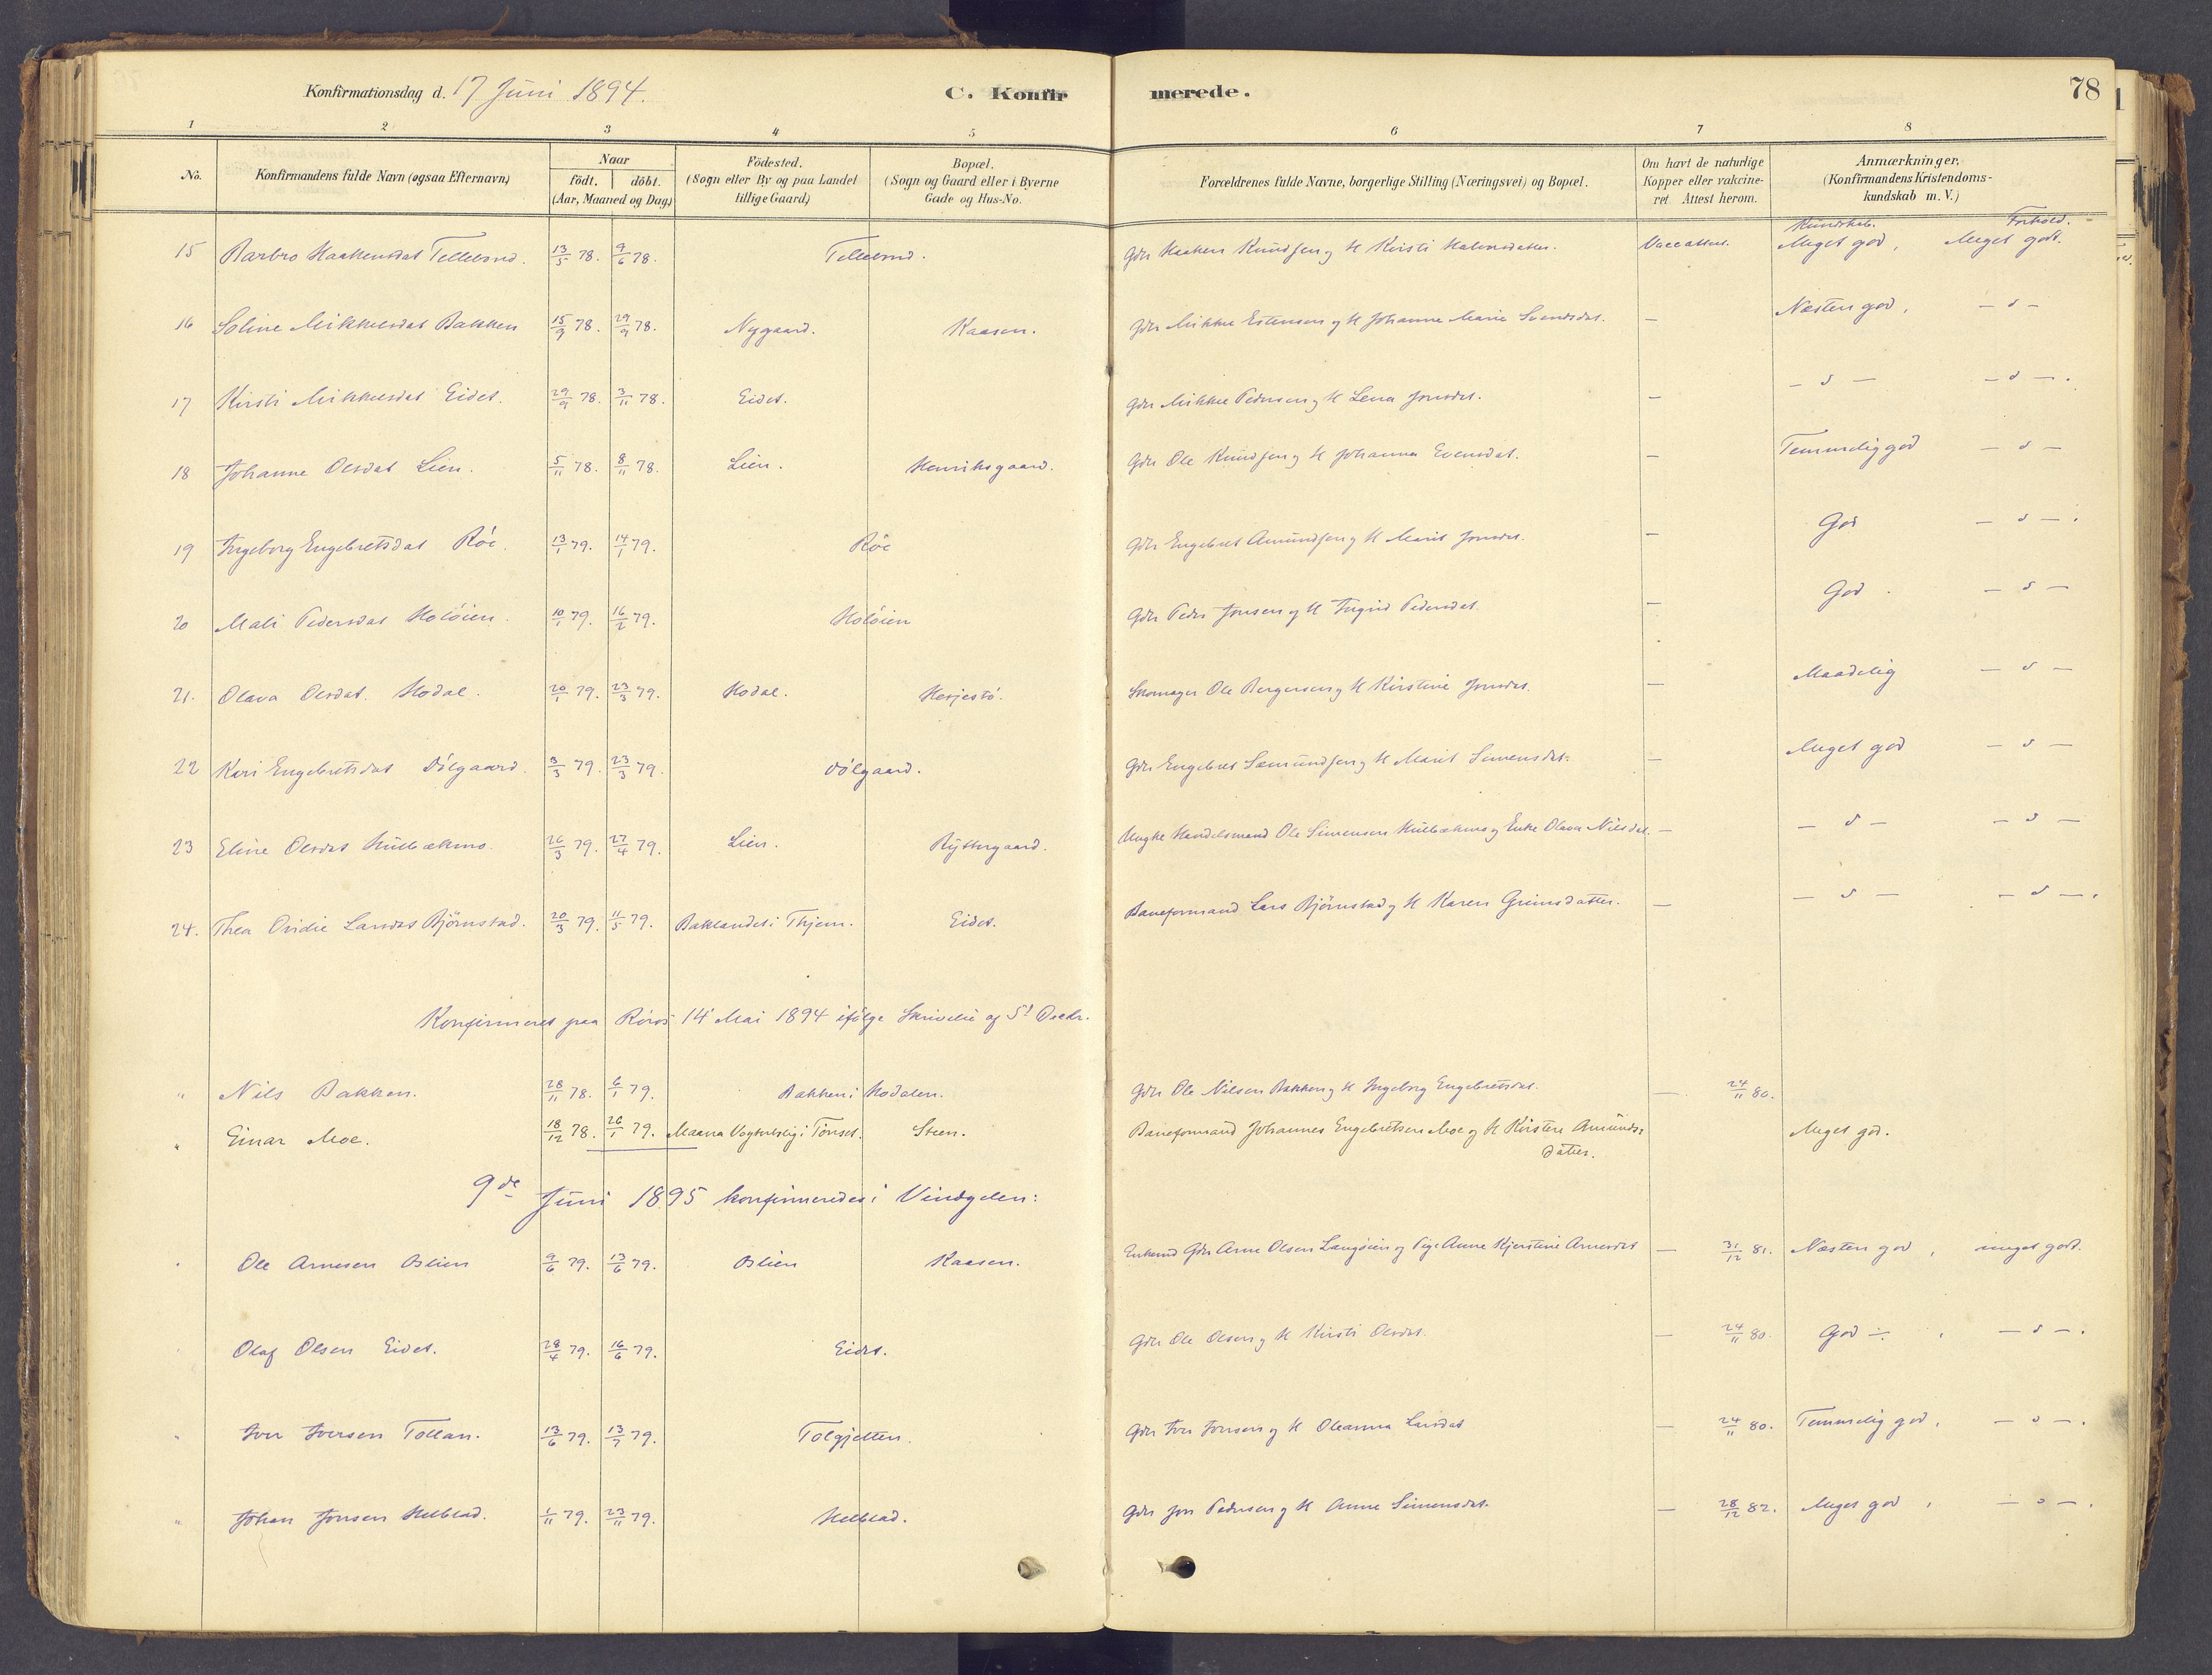 Konfirmationsdag d. 17 Juni 1894. C. Konfirmerede. 78
1 2 3 4 5 6 7 8
No. Konfirmandens fulde Navn (ogsaa Efternavn) Naar födt. döbt. (Aar, Maaned og Dag) Födested. (Sogn eller By og paa Landet tillige Gaard) Bopæl. (Sogn og Gaard eller i Byerne Gade og Hus-No. Forældrenes fulde Navne, borgerlige Stilling (Næringsvei) og Bopæl. Om havt de naturlige Kopper eller vakcineret Attest herom. Anmærkninger. (Konfirmandens Kristendomskundskab m. V.)
Kundskab. Forhold.
15 Barbro Haakensdat 13/5 78. 9/6 78. Gdr Haaken Knudsen og H Kirsti Vaccattest. Meget god, Meget godt.
16 Soline Mikkelsdat Bakken 15/9 78. 29/9 78. Nygaard. Kaasen. Gdr Mikkel Estensen og H Johanne Marie Svendsdat. — Næsten god, — d —
17 Kirsti Mikkelsdat Eidet. 29/9 78. 3/11 78. Eidet. Gdr Mikkel Pedersen og H Lena Jonsdat. — — d — — d —.
18 Johanne Olsdat Lien. 5/11 78. 8/11 78. Lien. Henriksgaard. Gdr Ole Knudsen og H Johanna Evensdat. — Temmelig god — d —
19 Ingeborg Engebretsdat Röe. 13/1 79. 14/1 79. Röe Gdr Engebret Amundsen og H Marit Jonsdat. — God — d —.
20 Mali Pedersdat Holöien. 10/1 79. 16/2 79. Holöien Gdr Peder Jonsen og H Ingrid Pedersdat. — God. — d —
21. Olava Olsdat. Hodal. 20/1 79. 23/3 79. Hodal. Herjestö. Skomager Ole Bergersen og H Kirstine Jonsdat. — Maadelig — d —
22 Kari Engebretsdat Dölgaard. 3/3 79. 23/3 79. Dölgaard. Gdr Engebret Sæmundsen og H Marit Simensdat. — Meget god — d —
23 Eline Olsdat 26/3 79. 27/4 79. Lien. Ryttergaard. Handelsmand Ole Simensen og Enke Olava Nilsdat. — — d — — d —
24. Thea Ovidie Larsdat Björnstad. 20/3 79. 11/5 79. Baklandet i Thjem. Eidet. Baneformand Lars Björnstad og H Karen Grimsdatter. — — d — — d —.
Konfirmeret paa Röros 14 Mai 1894 ifölge Skrivelse af
" Nils Bakken. 28/11 78. 6/1 79. Bakken i Hodalen. Gdr Ole Nilsen Bakken og H Ingeborg Engebretsdat. — 24/11 80.
" Einar Moe. 18/12 78. 26/1 79. Maana Vogterbolig i Tönset. Steen. Baneformand Johannes Engebretsen Moe og H Kirstine Amunds- Meget god.
datter.
9de Juni 1895 konfirmeredes i Vingelen:
" Ole Arnesen Oslien 9/6 79. 13/6 79. Oslien Kaasen. Enkemd Gdr Arne Olsen Langöien og Pige Anne Kjerstine Arnesdat — 31/12 81. Næsten god, meget godt.
" Olaf Olsen Eidet. 28/4 79. 16/6 79. Eidet. Gdr Ole Olsen og H Kirsti Olsdat. — 24/11 80. God ÷. — d —.
" Iver Iversen Tollan. 13/6 79. 13/7 79. Tolgjetten. Gdr Iver Jonsen og H Oleanna Larsdat — 24/11 80. Temmelig god, — d —.
" Johan Jonsen 1/11 79. 23/11 79. Gdr Jon Pedersen og H Anne Simensdat. — 28/12 82. Meget god, — d —.